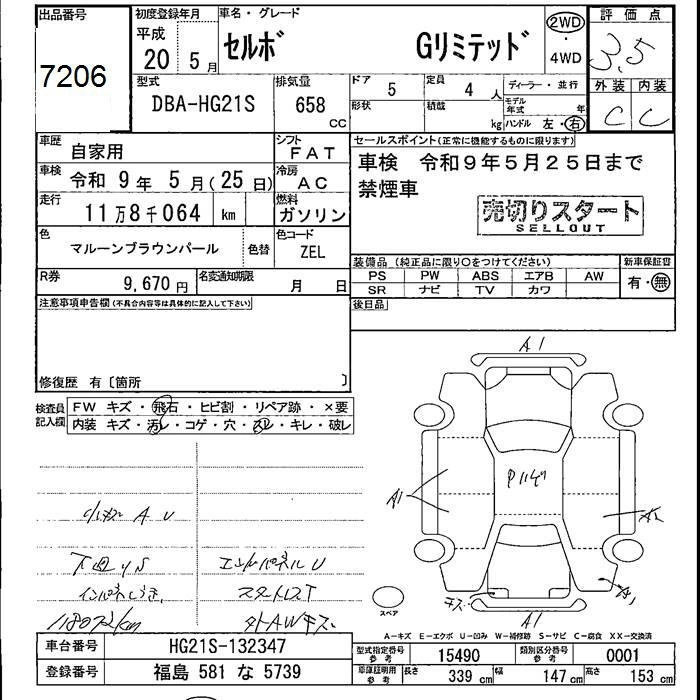 出品番号
7206
初度登録年月
平成
20 5月
車名・グレード
セルボ Gリミテッド
2WD
4WD
評価点
3.5
外装 内装
C C
型式
DBA-HG21S
排気量
658
CC
ドア 5
定員 4人
形状
積載 kg
ディーラー・並行
モデル年式 年
ハンドル 左・右
車歴
自家用
シフト
FAT
車検
令和 9年 5月(25日)
冷房
AC
走行
11万8千064 km
燃料
ガソリン
色
マルーンブラウンパール
色替
色コード
ZEL
R券
9,670円
名変通知期限
月 日
セールスポイント(正常に機能するものに限ります)
車検 令和9年5月25日まで
禁煙車
売切りスタート
SELLOUT
装備品(純正品に限り○をつけてください)
PS PW ABS エアB AW
SR ナビ TV カワ
新車保証書
有・無
後日品
注意事項申告欄(不具合内容等は具体的に記入して下さい)
修復歴 有〔箇所 〕
検査員
記入欄
FW キズ・飛石・ヒビ割・リペア跡・×要
内装 キズ・汚レ・コゲ・穴・スレ・キレ・破レ
A U
エンドパネルU
118072km
外AWキズ
A1
A1
A1
キズ
A1
スペア
A-キズ E-エクボ U-凹み W-補修跡 S-サビ C-腐食 XX-交換済
車台番号
HG21S-132347
登録番号
福島 581 な 5739
型式指定番号
参考
15490
類別区分番号
参考
0001
車庫証明用
参考
長さ 339cm 幅 147cm 高さ 153cm